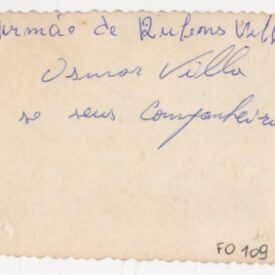 irmão de Rubens Vill
Osmar Villa
se seus Companheir
FO 109